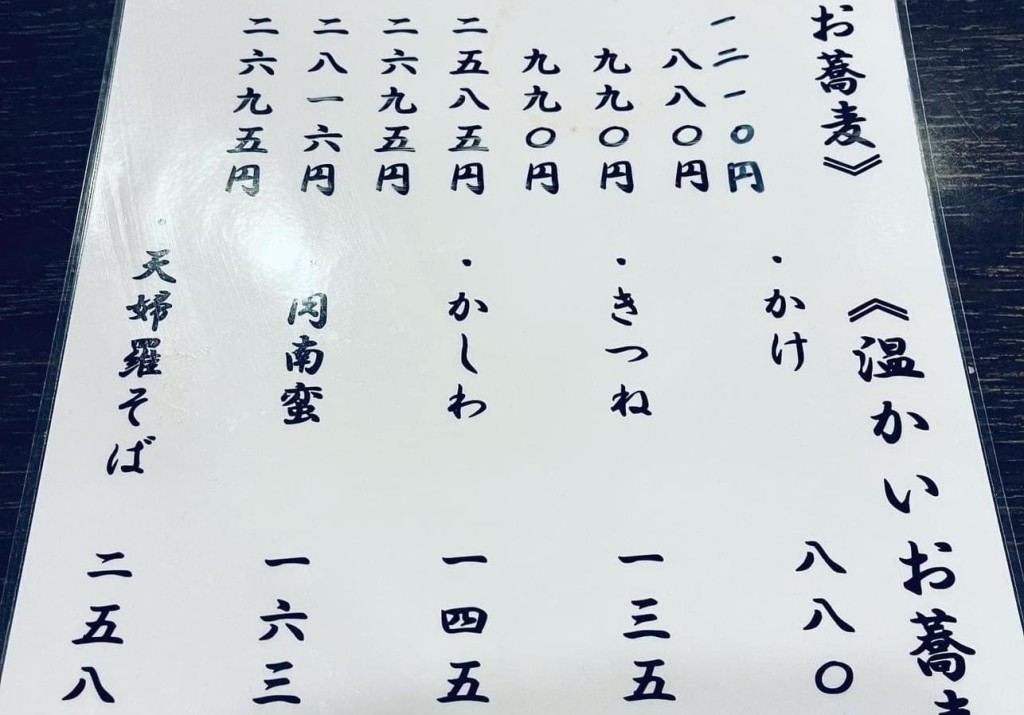 お蕎麦》
一二一〇円
八八〇円
九九〇円
九九〇円
二五八五円
二六九五円
二八一六円
二六九五円
《温かいお蕎麦
・かけ 八八〇
・きつね 一三五
・かしわ 一四五
肉南蛮 一六三
・天婦羅そば 二五八